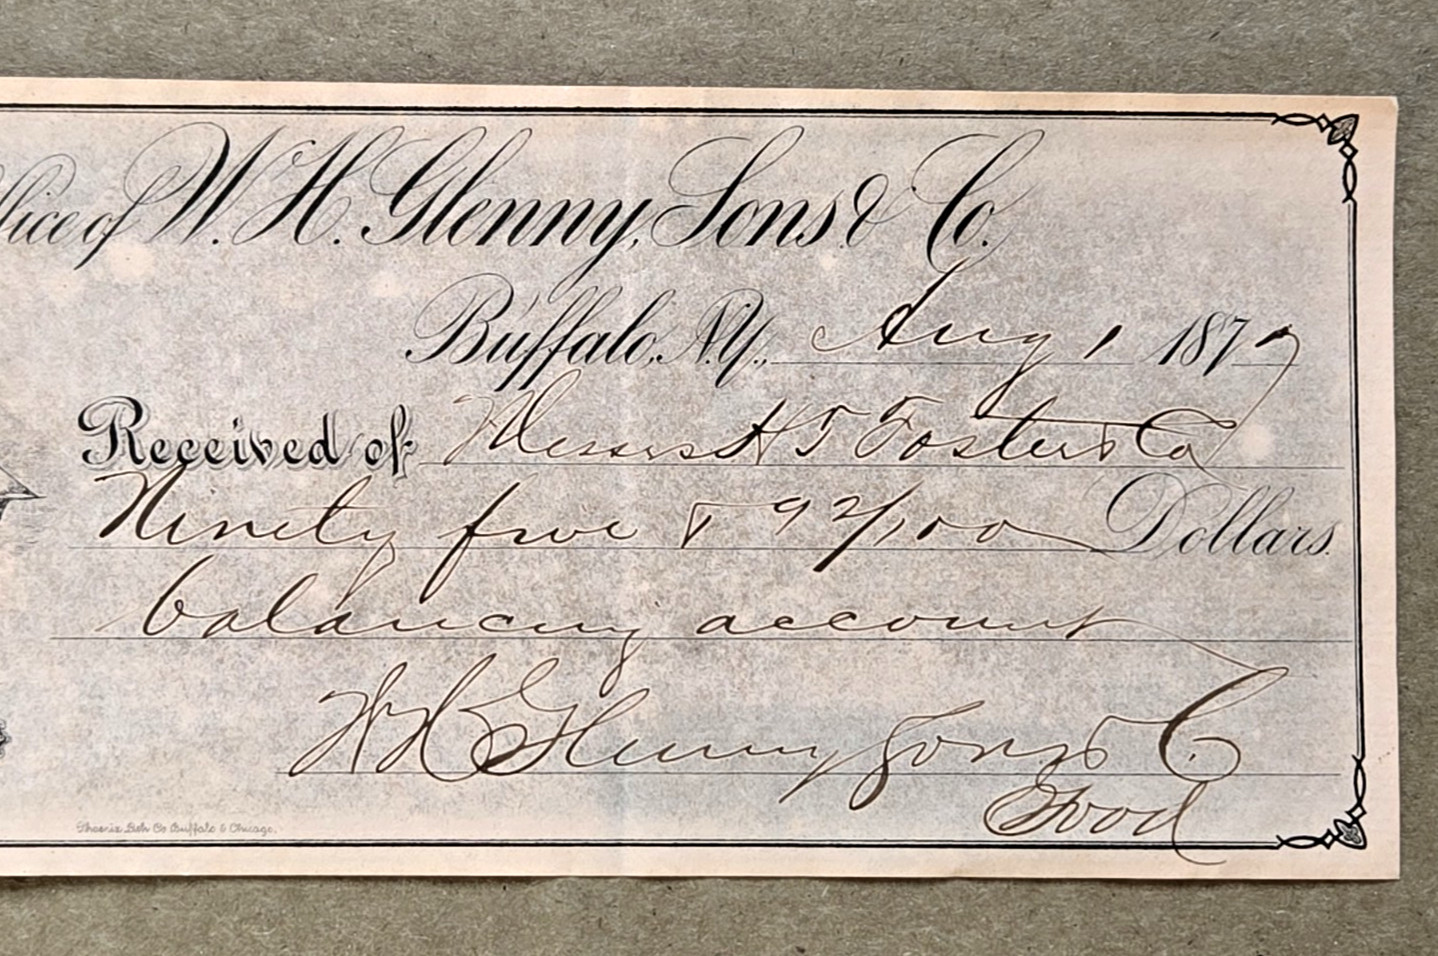 ffice of W. H. Glenny, Sons & Co.
Buffalo, N.Y., Aug 1 1879
Received of Messrs H T Foster & Co
Ninety five & 92/100 Dollars.
balancing account
W H Glenny Sons & Co
Phoenix Lith Co Buffalo & Chicago.